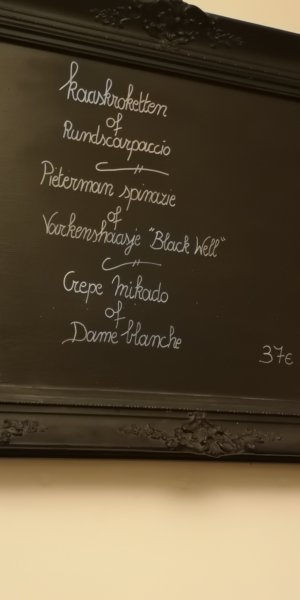 kaaskroketten
of
Rundscarpaccio
Pieterman spinazie
of
Varkenshaasje "Black Well"
Crepe Mikado
of
Dame blanche
37€